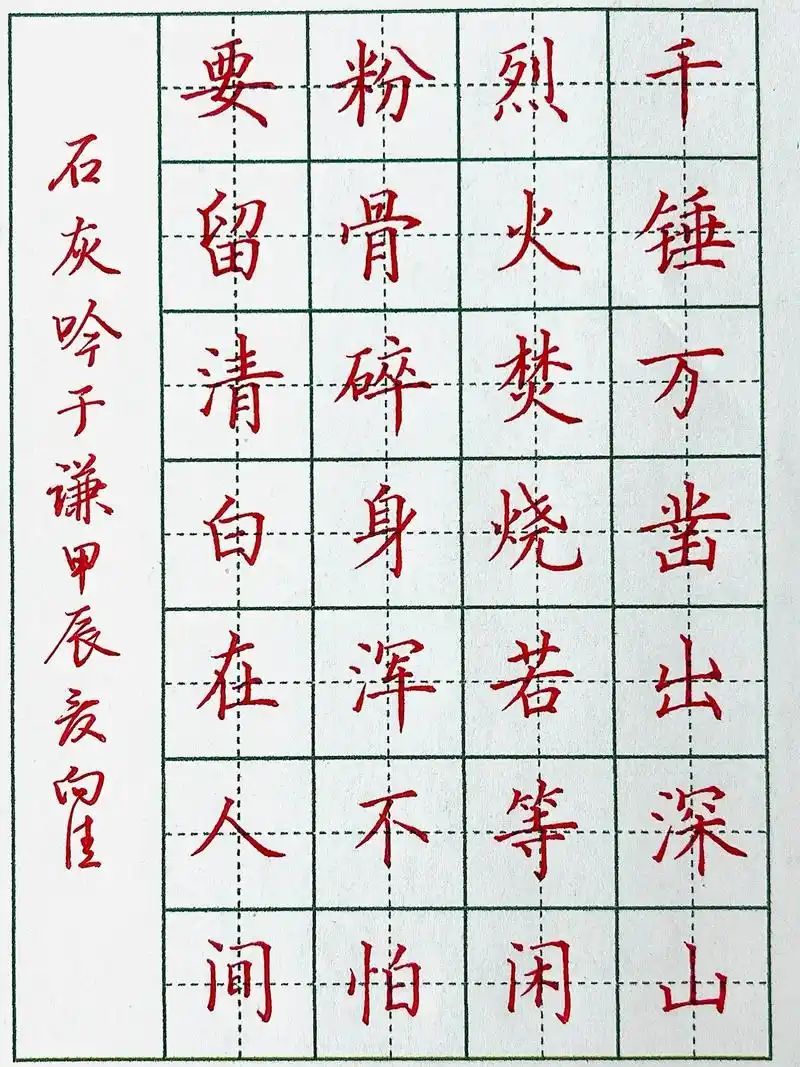 千锤万凿出深山
烈火焚烧若等闲
粉骨碎身浑不怕
要留清白在人间
石灰吟于谦甲辰夏向佳